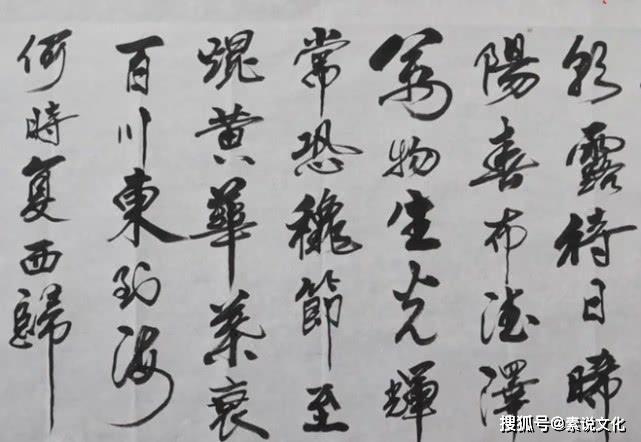 朝露待日晞
陽春布德澤
萬物生光輝
常恐穐節至
焜黄華葉衰
百川東到海
何時复西歸
搜狐号@素说文化